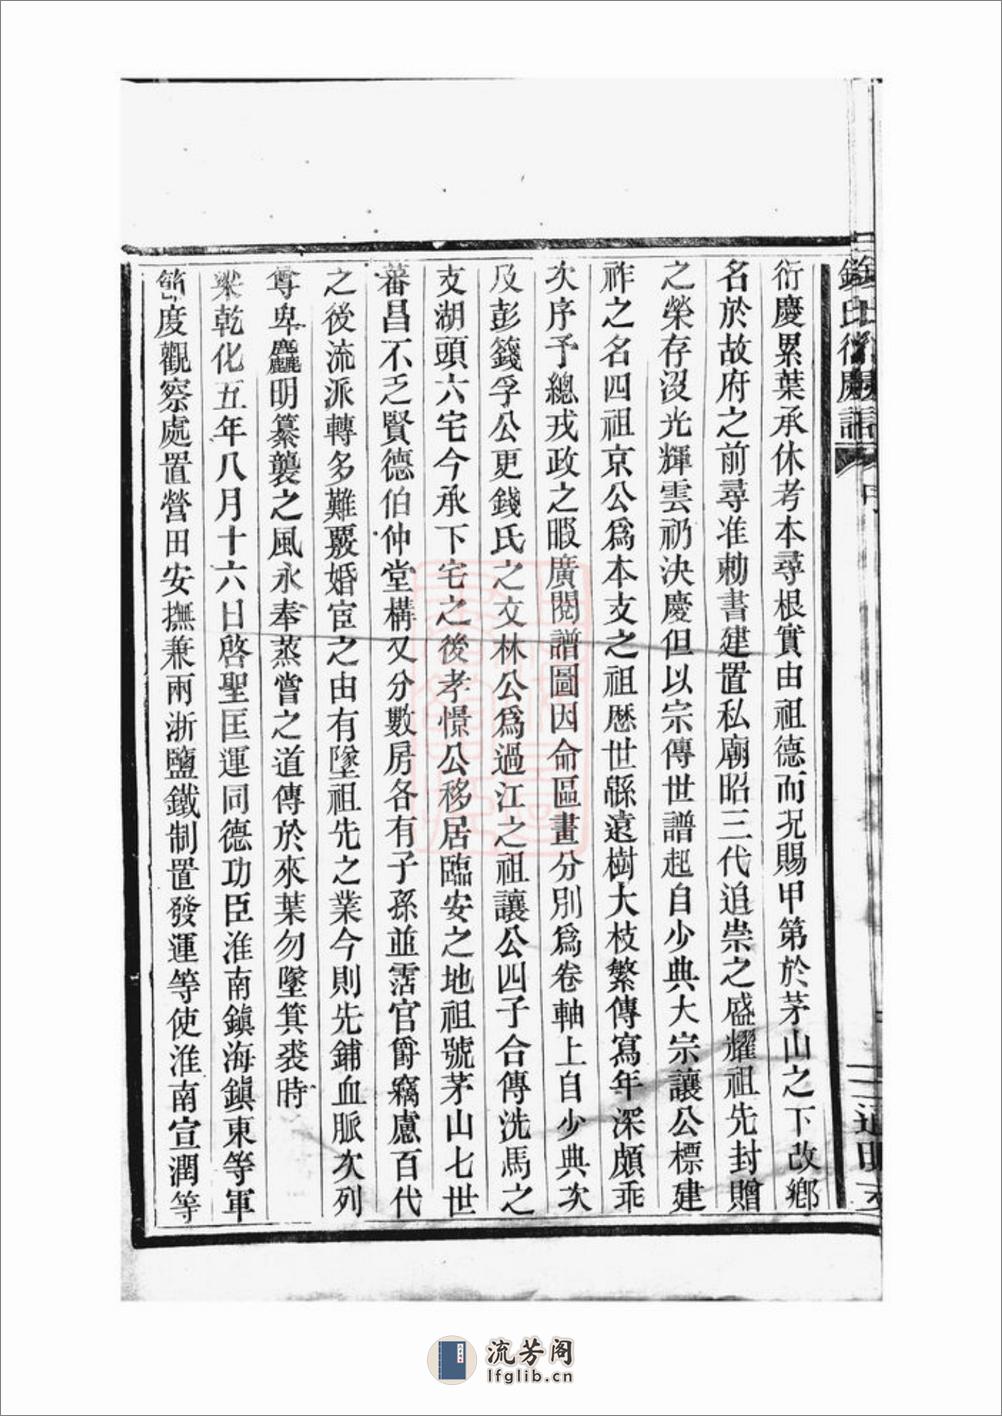 衍慶累葉承休考本尋根實由祖德而況賜甲第於茅山之下改鄉
名於故府之前尋准勅書建置私廟昭三代追崇之盛耀祖先封贈
之榮存沒光輝雲礽決慶但以宗傳世譜起自少典大宗讓公標建
祚之名四祖京公爲本支之祖歷世緜遠樹大枝繁傳寫年深頗乖
次序予總戎政之暇廣閱譜圖因命區畫分別爲卷軸上自少典次
及彭籛孚公更錢氏之文林公爲過江之祖讓公四子合傳洗馬之
支湖頭六宅今承下宅之後孝憬公移居臨安之地祖號茅山七世
蕃昌不乏賢德伯仲堂構又分數房各有子孫並霑官爵竊慮百代
之後流派轉多難覈婚宦之由有墜祖先之業今則先鋪血脈次列
尊卑麤明纂襲之風永奉蒸嘗之道傳於來葉勿墜箕裘時
梁乾化五年八月十六日啓聖匡運同德功臣淮南鎮海鎮東等軍
節度觀察處置營田安撫兼兩浙鹽鐵制置發運等使淮南宣潤等
流芳阁
lfglib.cn